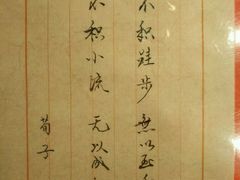 不积跬步 無以至千
不积小流 无以成
荀子